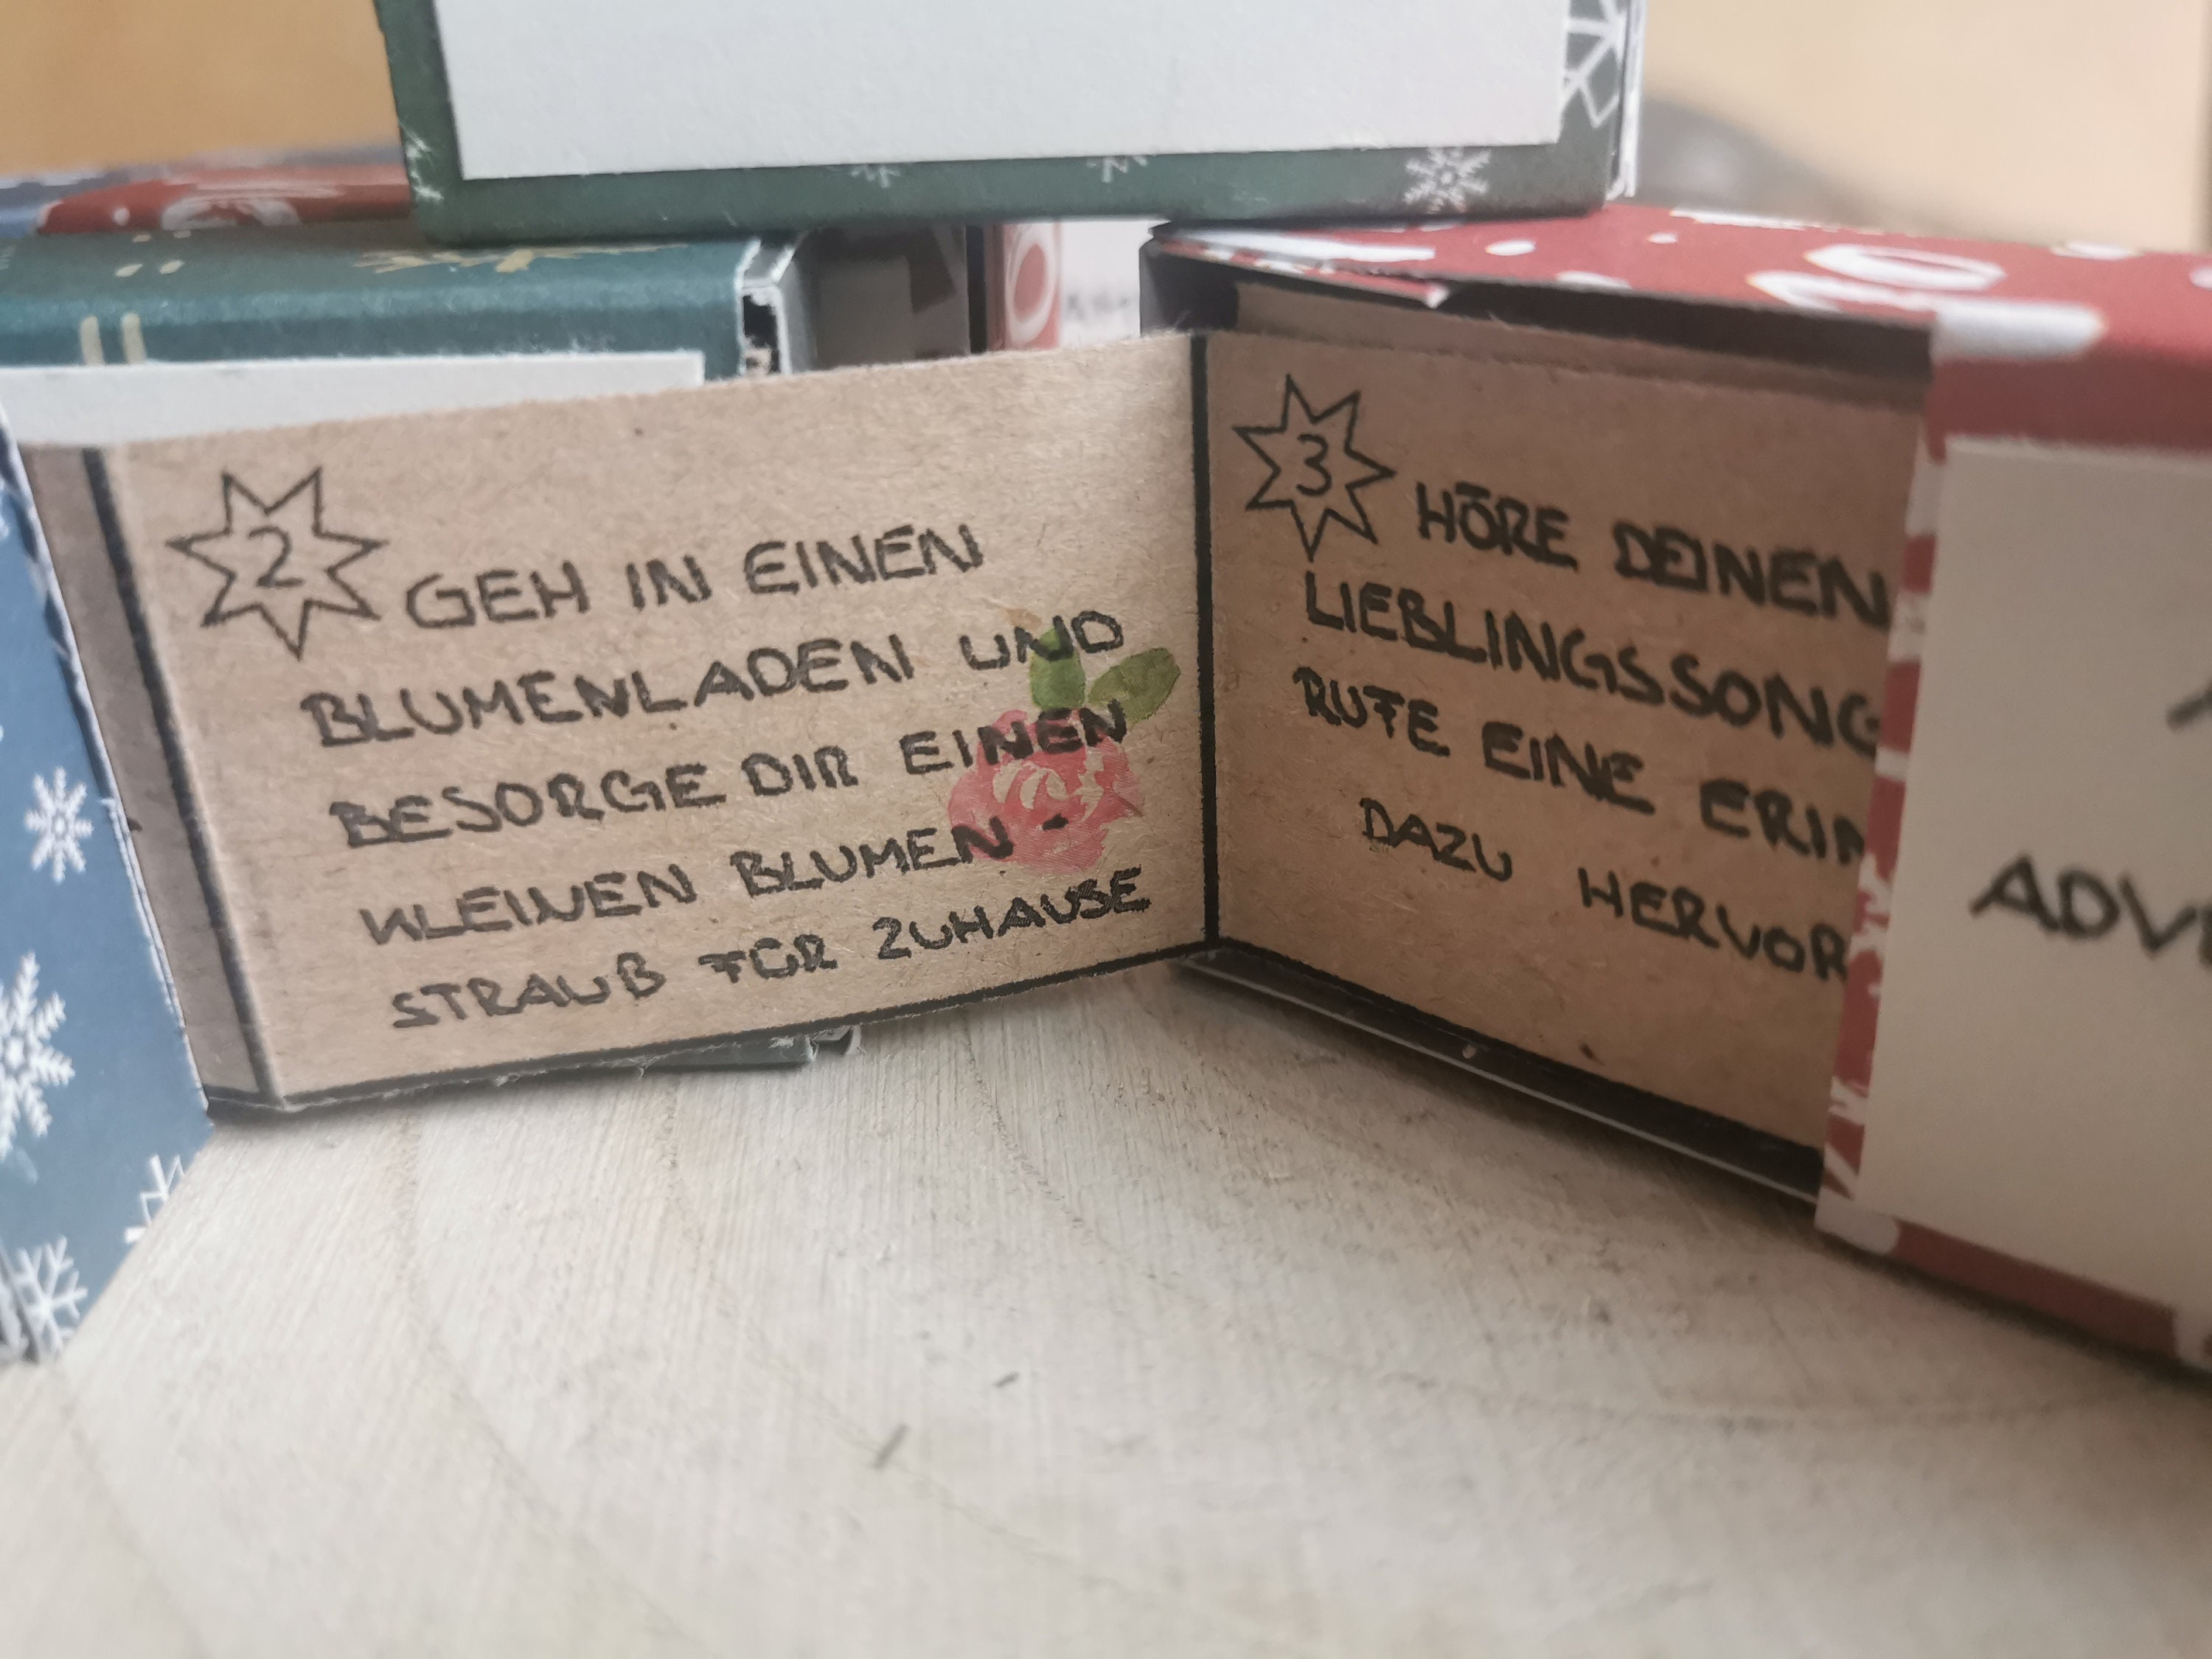 2
GEH IN EINEN
BLUMENLADEN UND
BESORGE DIR EINEN
KLEINEN BLUMEN-
STRAUß FÜR ZUHAUSE
3
HÖRE DEINEN
LIEBLINGSSONG
RUFE EINE ERIN
DAZU HERVOR
ADVE